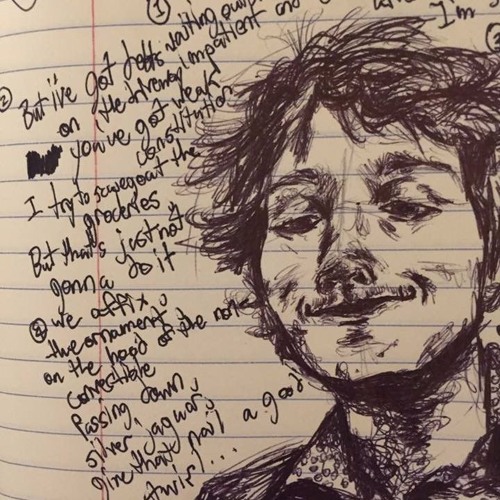 ①
I'm
② But i've got debts waiting
on the driveway impatient and
you've got weak
constitution
I try to scavenge out the
groceries
But that's just not
gonna do it
③ we affix
the ornament
on the hood of the non
convertible
Passing down
silver jaguar
give that pair a good
twirl...